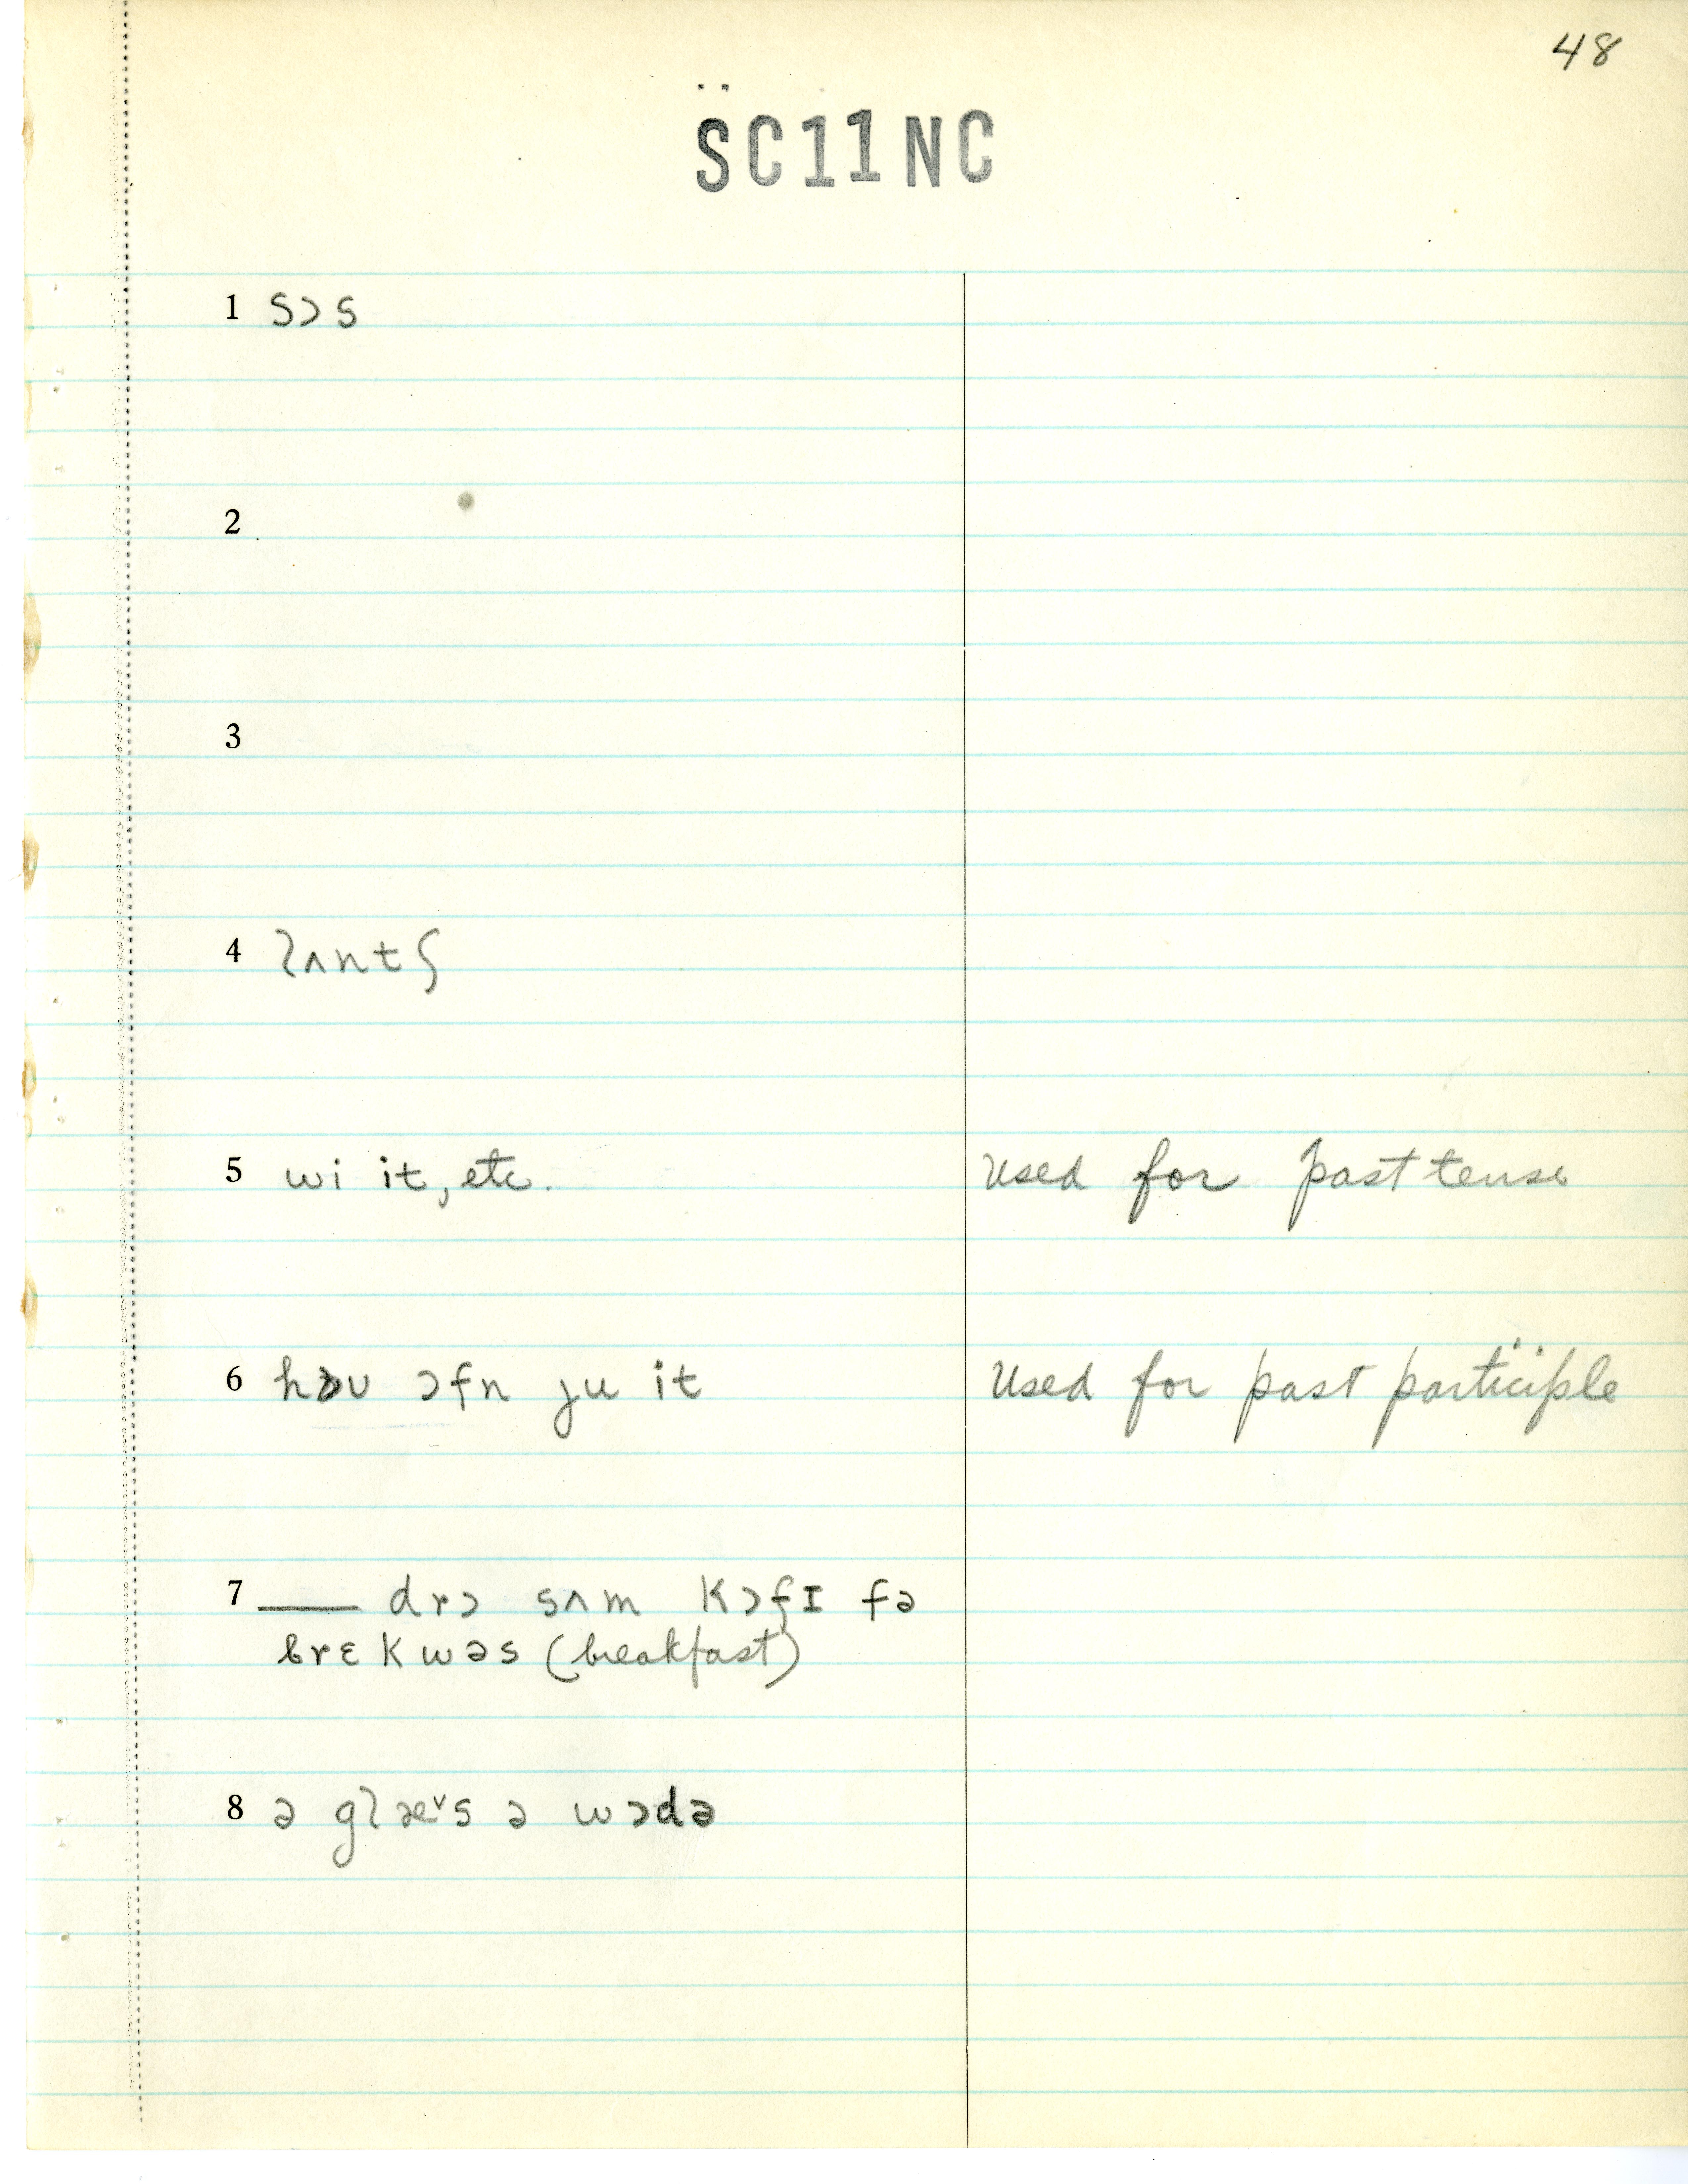 48
SC11NC
1 sɔs
2
3
4 lʌntʃ
5 wi it, etc. Used for past tense
6 hɔu ɔfn ju it Used for past participle
7 ___ drɔ sʌm kɔfɪ fə
brɛkwəs (breakfast)
8 ə glæᵛs ə wɔdə